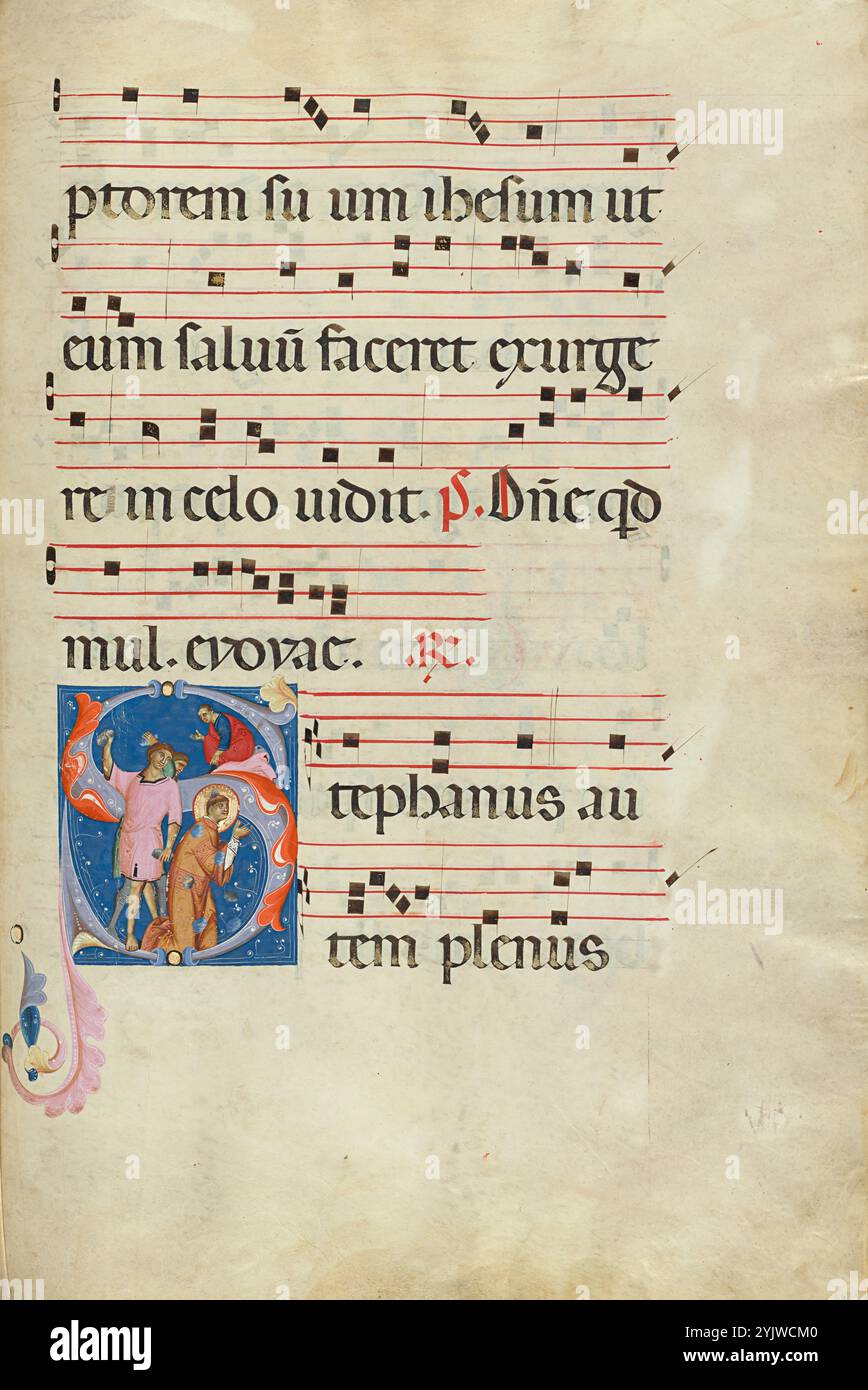 ptorem su um ihesum ut
eum saluū faceret exurge
re in celo uidit. ps. Dñe qd
mul. evovae. .R.
Stephanus au
tem plenus
alamy
Image ID: 2YJWCM0
www.alamy.com